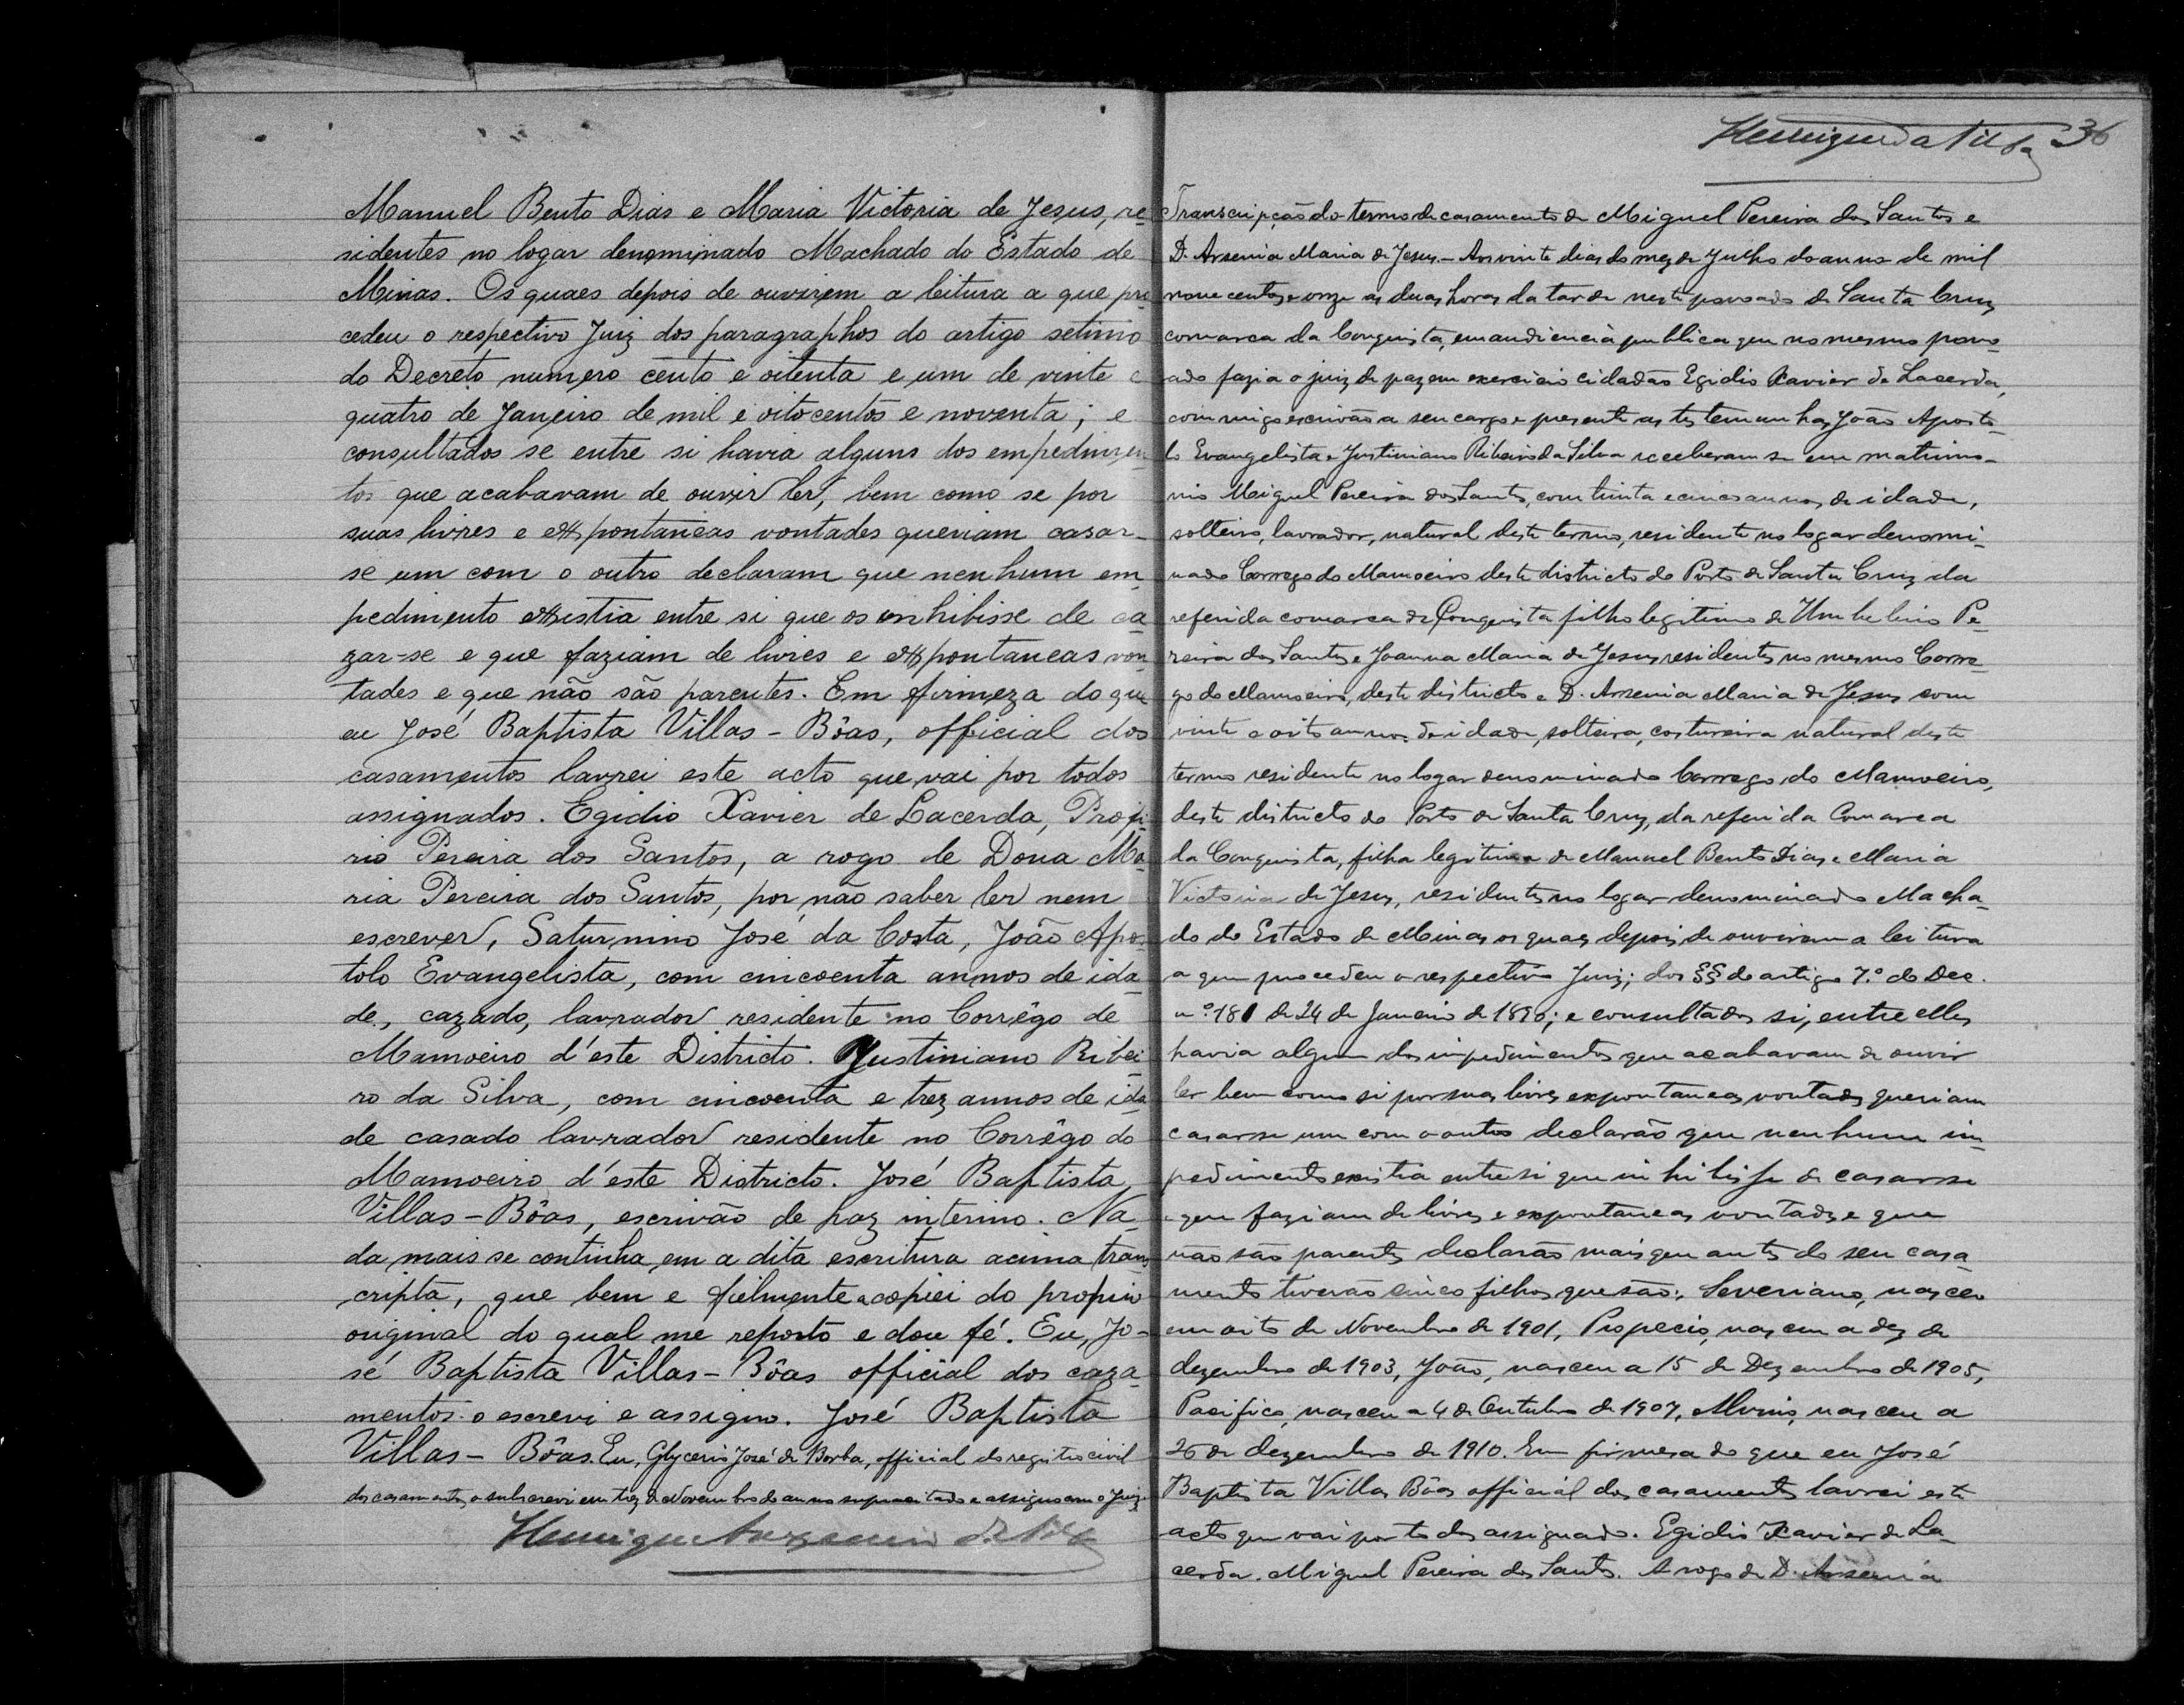 Manuel Bento Dias e Maria Victoria de Jesus, re-
sidentes no logar denominado Machado do Estado de
Minas. Os quaes depois de ouvirem a leitura a que pro
cedeu o respectivo Juiz dos paragraphos do artigo setimo
do Decreto numero cento e oitenta e um de vinte e
quatro de Janeiro de mil e oitocentos e noventa; e
consultados se entre si havia alguns dos empedimen
tos que acabavam de ouvir ler, bem como se por
suas livres e expontaneas vontades queriam casar-
se um com o outro declaram que nenhum em
pedimento existia entre si que os inhibisse de ca-
zar-se e que faziam de livres e expontaneas von-
tades e que não são parentes. Em firmeza do que
eu José Baptista Villas-Bôas, official dos
casamentos lavrei este acto que vai por todos
assignados. Egidio Xavier de Lacerda, Profi-
rio Pereira dos Santos, a rogo de Dona Ma-
ria Pereira dos Santos, por não saber ler nem
escrever, Saturnino José da Costa, João Apos-
tolo Evangelista, com cincoenta annos de ida-
de, cazado, lavrador residente no Corrêgo de
Mamoeiro d'este Districto. Justiniano Ribei-
ro da Silva, com cincoenta e trez annos de ida
de casado lavrador residente no Corrêgo do
Mamoeiro d'este Districto. José Baptista
Villas-Bôas, escrivão de paz interino. Na-
da mais se continha em a dita escritura acima trans
cripta, que bem e fielmente a copiei do proprio
original do qual me reporto e dou fé. Eu, Jo-
sé Baptista Villas-Bôas official dos caza-
mentos o escrevi e assigno. José Baptista
Villas-Bôas. Eu, Glycerio José de Borba, official do registro civil
dos casamentos, o subscrevi em trez de Novembro do anno supracitado e assigno com o Juiz.
Henrique da Silva
36
Transcripção do termo de casamento de Miguel Pereira dos Santos e
D. Arsenia Maria de Jesus.- Aos vinte dias do mez de Julho do anno de mil
nove centos e onze as duas horas da tarde neste povoado de Santa Cruz
comarca da Conquista, em audiencia publica que no mesmo povo-
ado fazia o juiz de paz em exercicio cidadão Egidio Xavier de Lacerda,
commigo escrivão a seu cargo e presente as testemunhas João Aposto-
lo Evangelista e Justiniano Ribeiro da Silva receberam se em matrimo-
nio Miguel Pereira dos Santos, com trinta e cinco annos de idade,
solteiro, lavrador, natural deste termo, residente no logar denomi-
nado Corrego do Mamoeiro deste districto do Porto de Santa Cruz da
referida comarca de Conquista filho legitimo de Umbelino Pe-
reira dos Santos e Joanna Maria de Jesus residentes no mesmo Corre-
go do Mamoeiro, deste districto e D. Arsenia Maria de Jesus com
vinte e oito annos de idade, solteira, costureira natural deste
termo residente no logar denominado Corrego do Mamoeiro,
deste districto do Porto de Santa Cruz, da referida Comarca
da Conquista, filha legitima de Manuel Bento Dias e Maria
Victoria de Jesus, residentes no logar denominado Macha-
do do Estado de Minas os quaes depois de ouviram a leitura
a que procedeu o respectivo Juiz; dos §§ do artigo 7.º do Dec.
n.º 181 de 24 de Janeiro de 1890; e consultados si, entre elles
havia algum dos impedimentos que acabavam de ouvir
ler bem como si por suas livres expontaneas vontades queriam
casarse um com o outro declarão que nenhum im-
pedimento existia entre si que inhibisse de casarse
e que faziam de livres e expontaneas vontades e que
não são parentes declarão mais que antes do seu casa-
mento tiverão cinco filhos que são: Severiano, nasceu
em oito de Novembro de 1901, Propecio, nasceu a dez de
dezembro de 1903, João, nasceu a 15 de Dezembro de 1905,
Pacifico, nasceu a 4 de Outubro de 1907, Alvino, nasceu a
26 de dezembro de 1910. Em firmesa do que eu José
Baptista Villas Bôas official dos casamentos lavrei este
acto que vai por todos assignado. Egidio Xavier de La-
cerda. Miguel Pereira dos Santos. A rogo de D. Arsenia